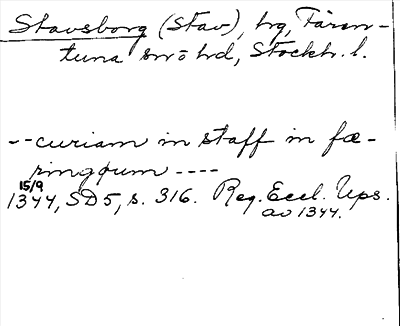 Stavsborg (Stav), hg, Fären-
tuna sn o hd, Stockh. l.
--curiam in staff in fæ-
ringøum ----
15/9
1344, SD5, s. 316. Reg. Eccl. Ups.
av 1344.